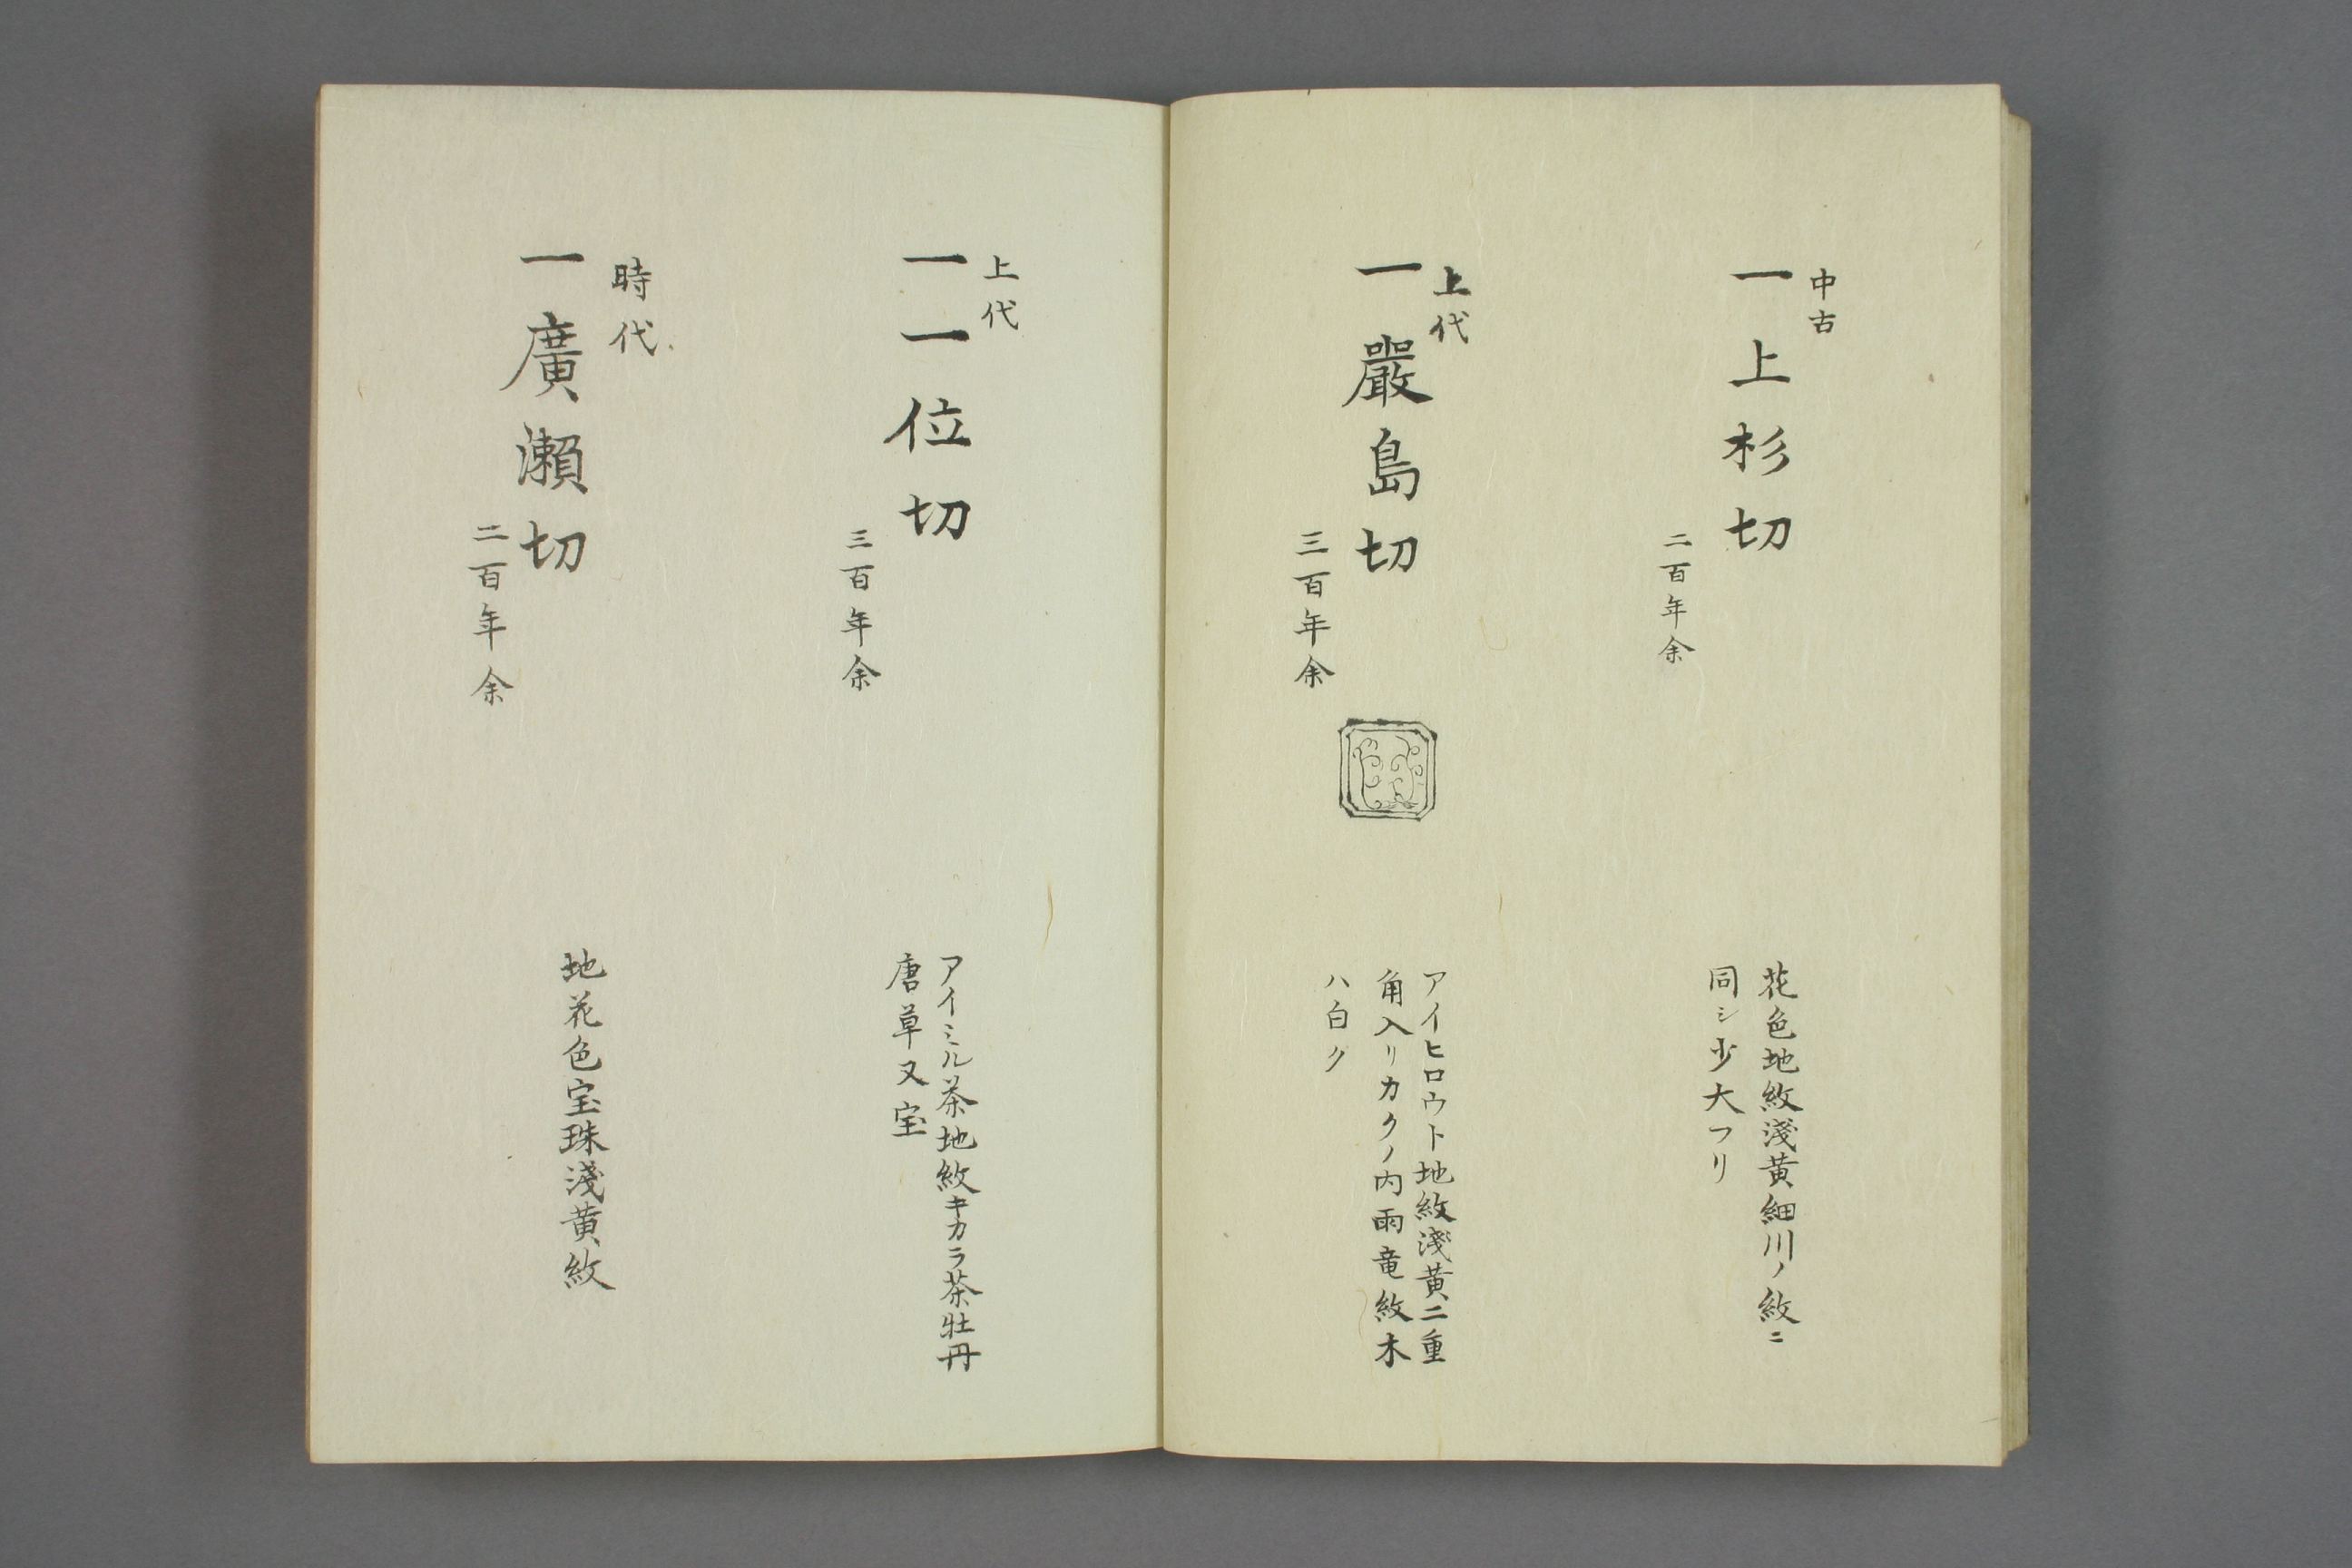 中古
一上杉切
二百年余
花色地紋淺黄細川ノ紋ニ
同シ少大フリ
上代
一嚴島切
三百年余
アイヒロウト地紋淺黄二重
角入リカクノ内雨竜紋木
ハ白ク
上代
一一位切
三百年余
アイミル茶地紋キカラ茶牡丹
唐草又宝
時代
一廣瀬切
二百年余
地花色宝珠淺黄紋